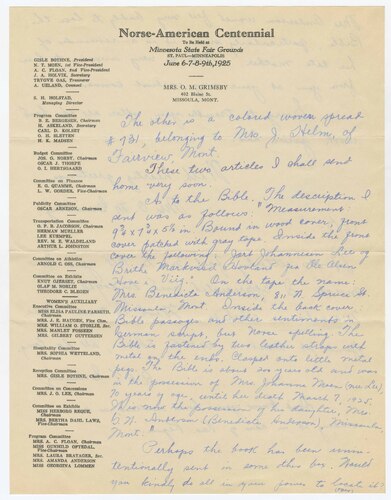 Norse-American Centennial
To be Held at
Minnesota State Fair Grounds
ST. PAUL—MINNEAPOLIS
June 6-7-8-9th, 1925
MRS. O. M. GRIMSBY
402 Blaine St.
MISSOULA, MONT.
GISLE BOTHNE, President
N. T. MOEN, 1st Vice-President
A. C. FLOAN, 2nd Vice-President
J. A. HOLVIK, Secretary
TRYGVE OAS, Treasurer
A. UELAND, Counsel
S. H. HOLSTAD,
Managing Director
Program Committee
B. E. BERGESEN, Chairman
H. ASKELAND, Secretary
CARL D. KOLSET
O. H. SLETTEN
H. K. MADSEN
Budget Committee
JOS. G. NORBY, Chairman
OSCAR J. THORPE
O. I. HERTSGAARD
Committee on Finance
E. G. QUAMME, Chairman
L. W. GORDER, Vice-Chairman
Publicity Committee
OSCAR ARNESON, Chairman
Transportation Committee
O. P. B. JACOBSON, Chairman
HERMAN MUELLER
LEE KUEMPEL
REV. M. E. WALDELAND
ARTHUR L. JOHNSTON
Committee on Athletics
ARNOLD C. OSS, Chairman
Committee on Exhibits
KNUT GJERSET, Chairman
OLAF M. NORLIE
THEODORE C. BLEGEN
WOMEN'S AUXILIARY
Executive Committee
MISS ELISA PAULINE FARSETH,
Chairman
MRS. J. E. HAUGEN, Vice Chm.
MRS. WILLIAM O. STORLIE, Sec.
MRS. MANLEY FOSSEEN
MRS. GILBERT GUTTERSEN
Hospitality Committee
MRS. SOPHIA WETTELAND,
Chairman
Reception Committee
MRS. GISLE BOTHNE, Chairman
Committee on Concessions
MRS. J. O. LEE, Chairman
Committee on Exhibits
MISS HERBORG REQUE,
Chairman
MRS. BERTHA DAHL LAWS,
Vice-Chairman
Program Committee
MRS. A. C. FLOAN, Chairman
MISS GUNHILD OFTEDAL,
Vice-Chairman
MRS. LAURA BRATAGER, Sec.
MRS. AMANDA ANDERSON
MISS GEORGINA LOMMEN
The other is a colored woven spread
# 931, belonging to Mrs. J. Helm, of
Fairview, Mont.
These two articles I shall send
home very soon.
As to the Bible. The description I
sent was as follows: "Measurement
Bound in wood cover, front
cover patched with gray tape. Inside the front
cover the following:
On the tape the name:
Mrs. Benedicte Anderson, 811 N. Spruce St.
Missoula, Mont. Inside the back cover,
Bible passages and other sentiments in
German script, but Norse spelling. The
Bible is fastened by two leather straps with
metal on the ends. Clasped onto little metal
pegs. The Bible is about 200 years old and was
in the possession of Mrs. Johanne Moen (nee Lee)
90 years of age, until her death March 1925.
Then into the possession of her daughter, Mrs.
Anderson (Benedicte Anderson), Missoula,
Mont."
Perhaps the book has been unin-
tentionally sent in some other box. Would
you kindly do all in your power to locate it?